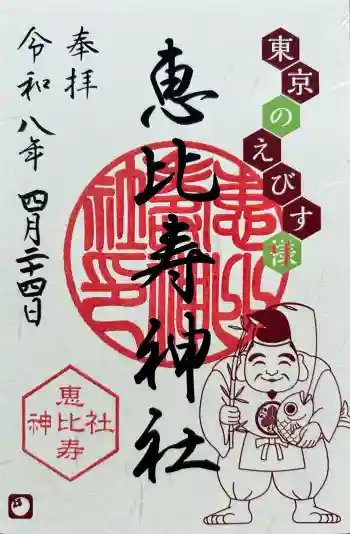 東京のえびす様
恵比寿神社
奉拝
令和八年 四月二十四日
恵比寿神社印
恵比寿
神社